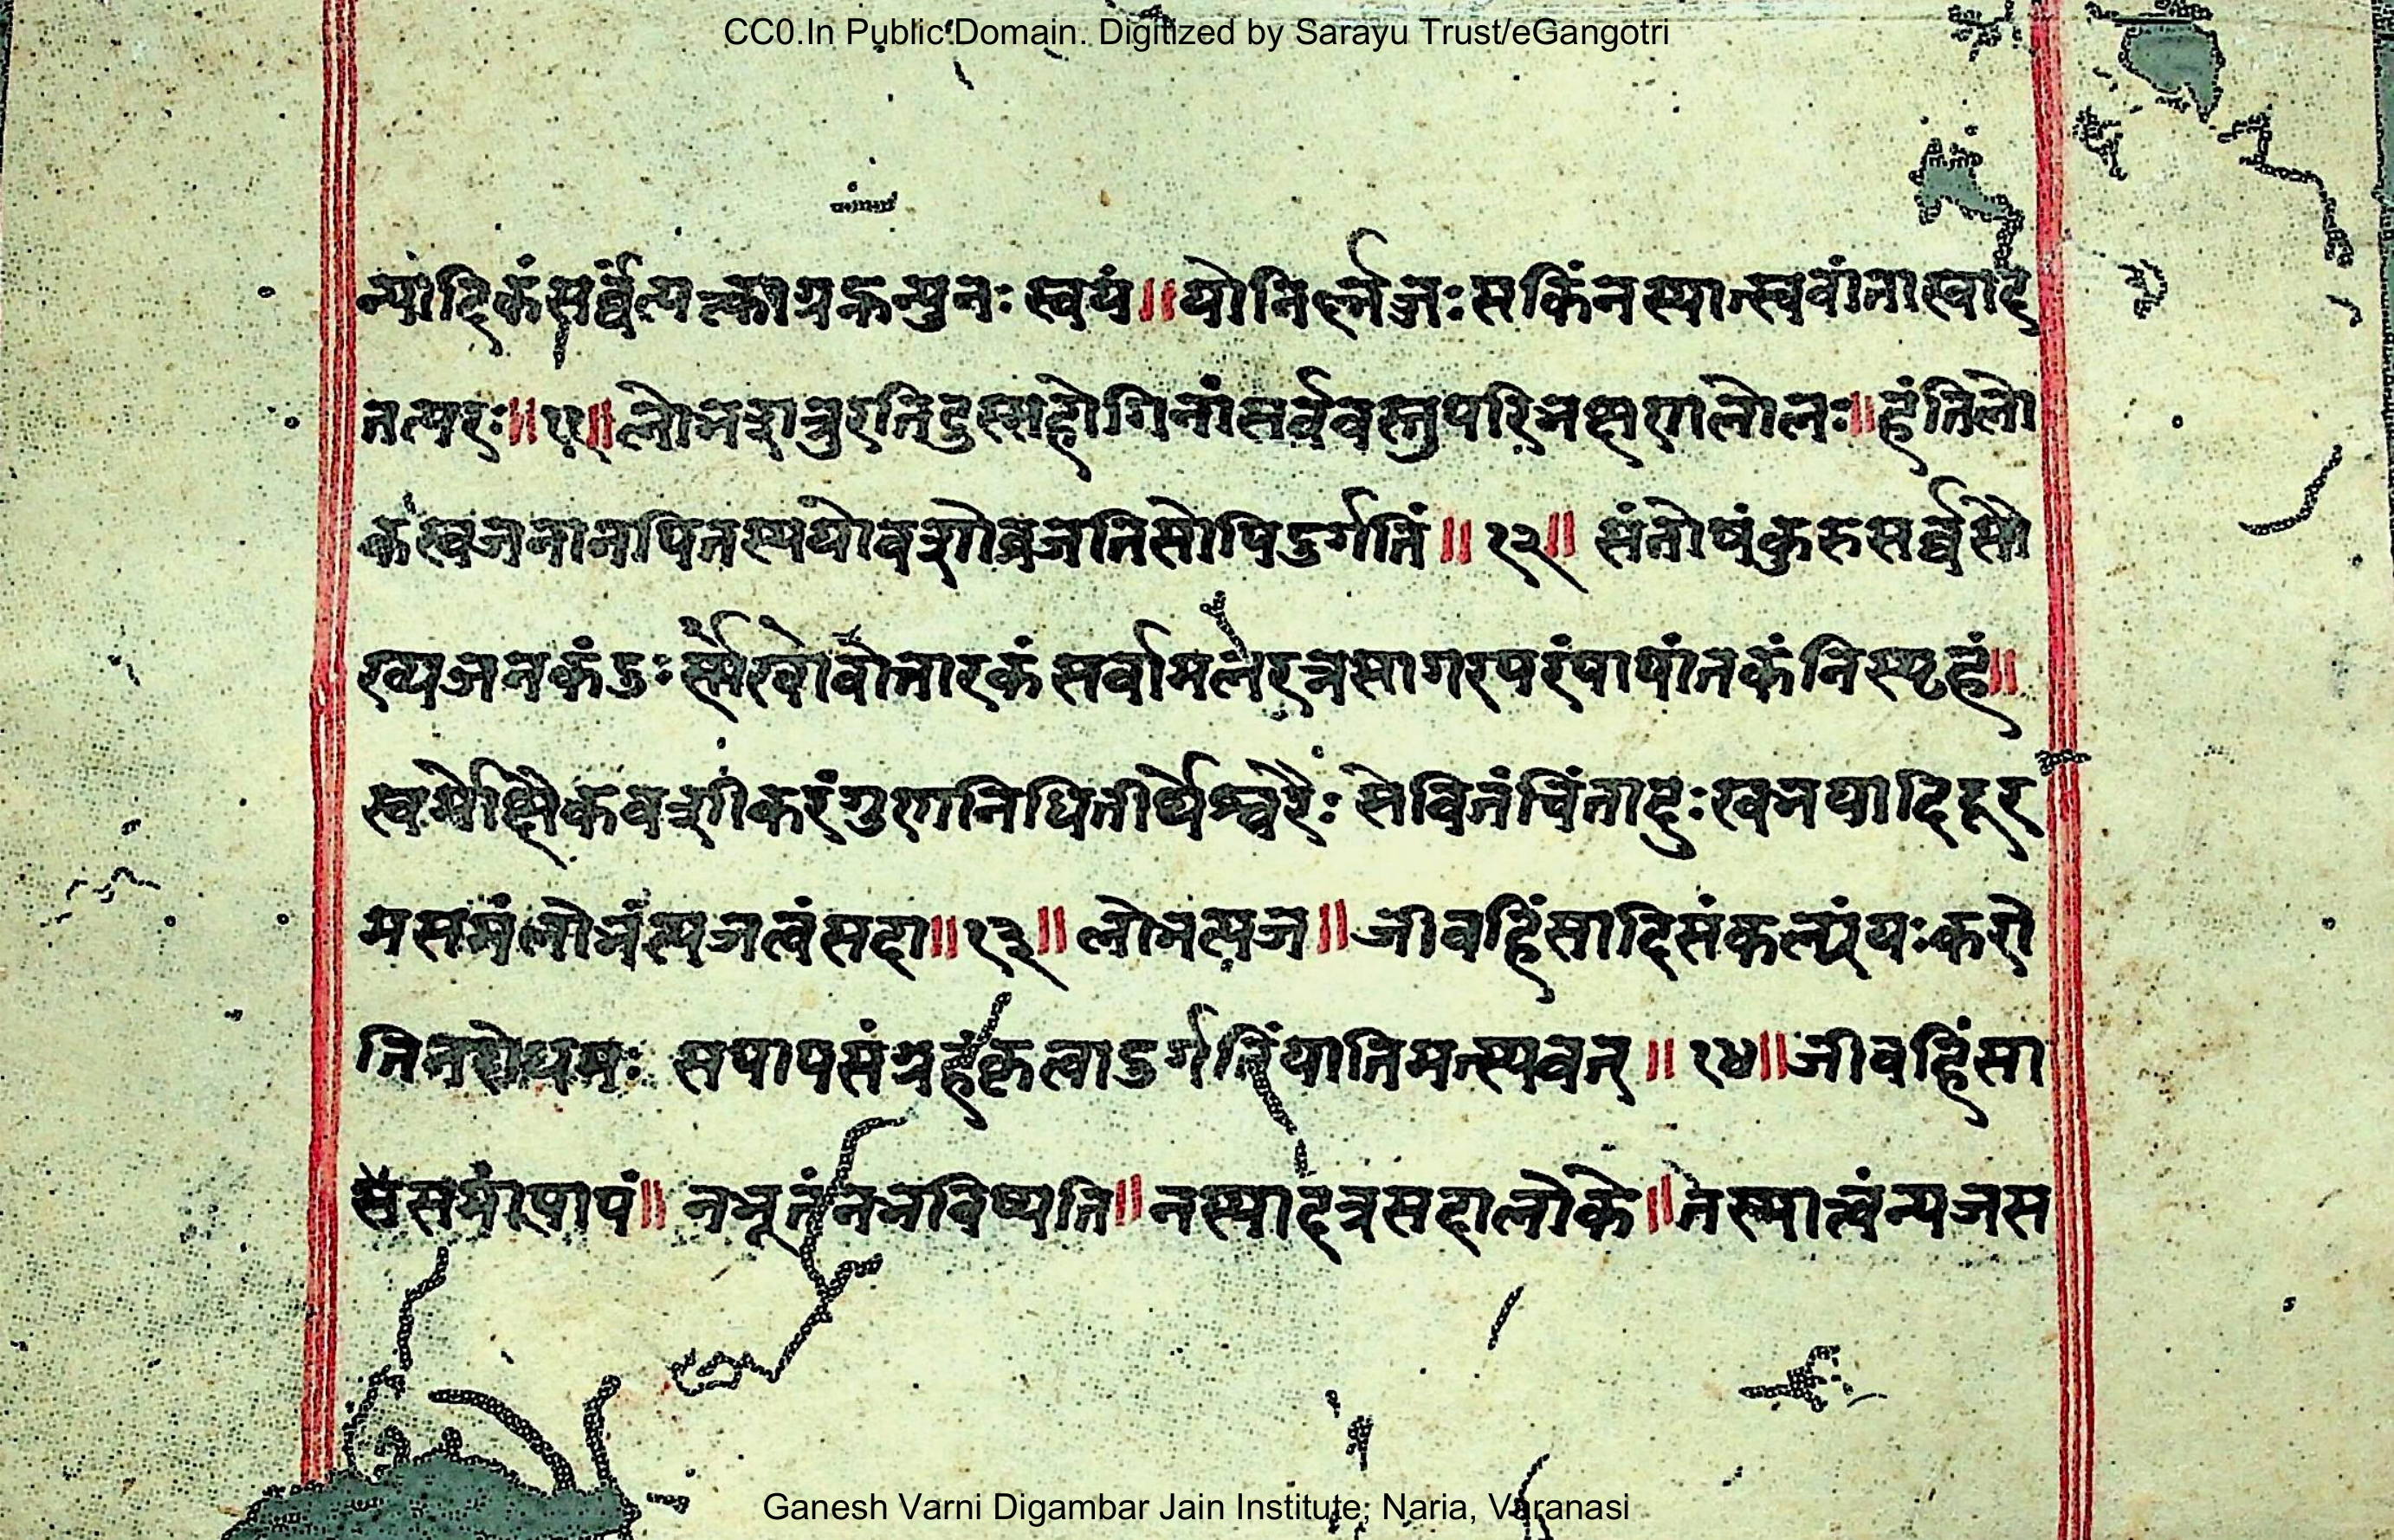 CC0.In Public Domain. Digitized by Sarayu Trust/eGangotri
न्यादिकंसर्व्वंत्यत्काग्रक्तन्पुनः स्वयं॥योनिर्ल्लजःसकिंनस्यान्स्ववांतास्वाद
तत्परः॥ ॥लोभशत्रुरतिदुस्सहोगिनांसर्ववस्तुपरिभक्षणलोलः॥हंतिलो
कस्वजनानपितस्ययोवशोव्रजतिसोपिदुर्गतिं॥१२॥ संतोषंकुरुसर्व्वसौ
ख्यजनकंदुः सर्वामलेरत्नसागरपरंपापांतकंनिस्पृहं॥
स्वर्मोक्षैकवशीकरंगुणनिधितीर्थेश्वरैः सेवितंचिंतादुःखभयादिदूर
मसमंलोभंत्यजत्वंसदा॥१३॥ लोभत्यज॥जीवहिंसादिसंकल्पंयःकरो
तिनरोधमः सपापसंग्रहंकृत्वादुर्गतिंयातिमत्स्यवत्॥१४॥जीवहिंसा
संसमंपापं॥ नभूतंनभविष्यति॥नस्यादत्रसदालोके॥तस्यात्वंत्यजस
Ganesh Varni Digambar Jain Institute, Naria, Varanasi